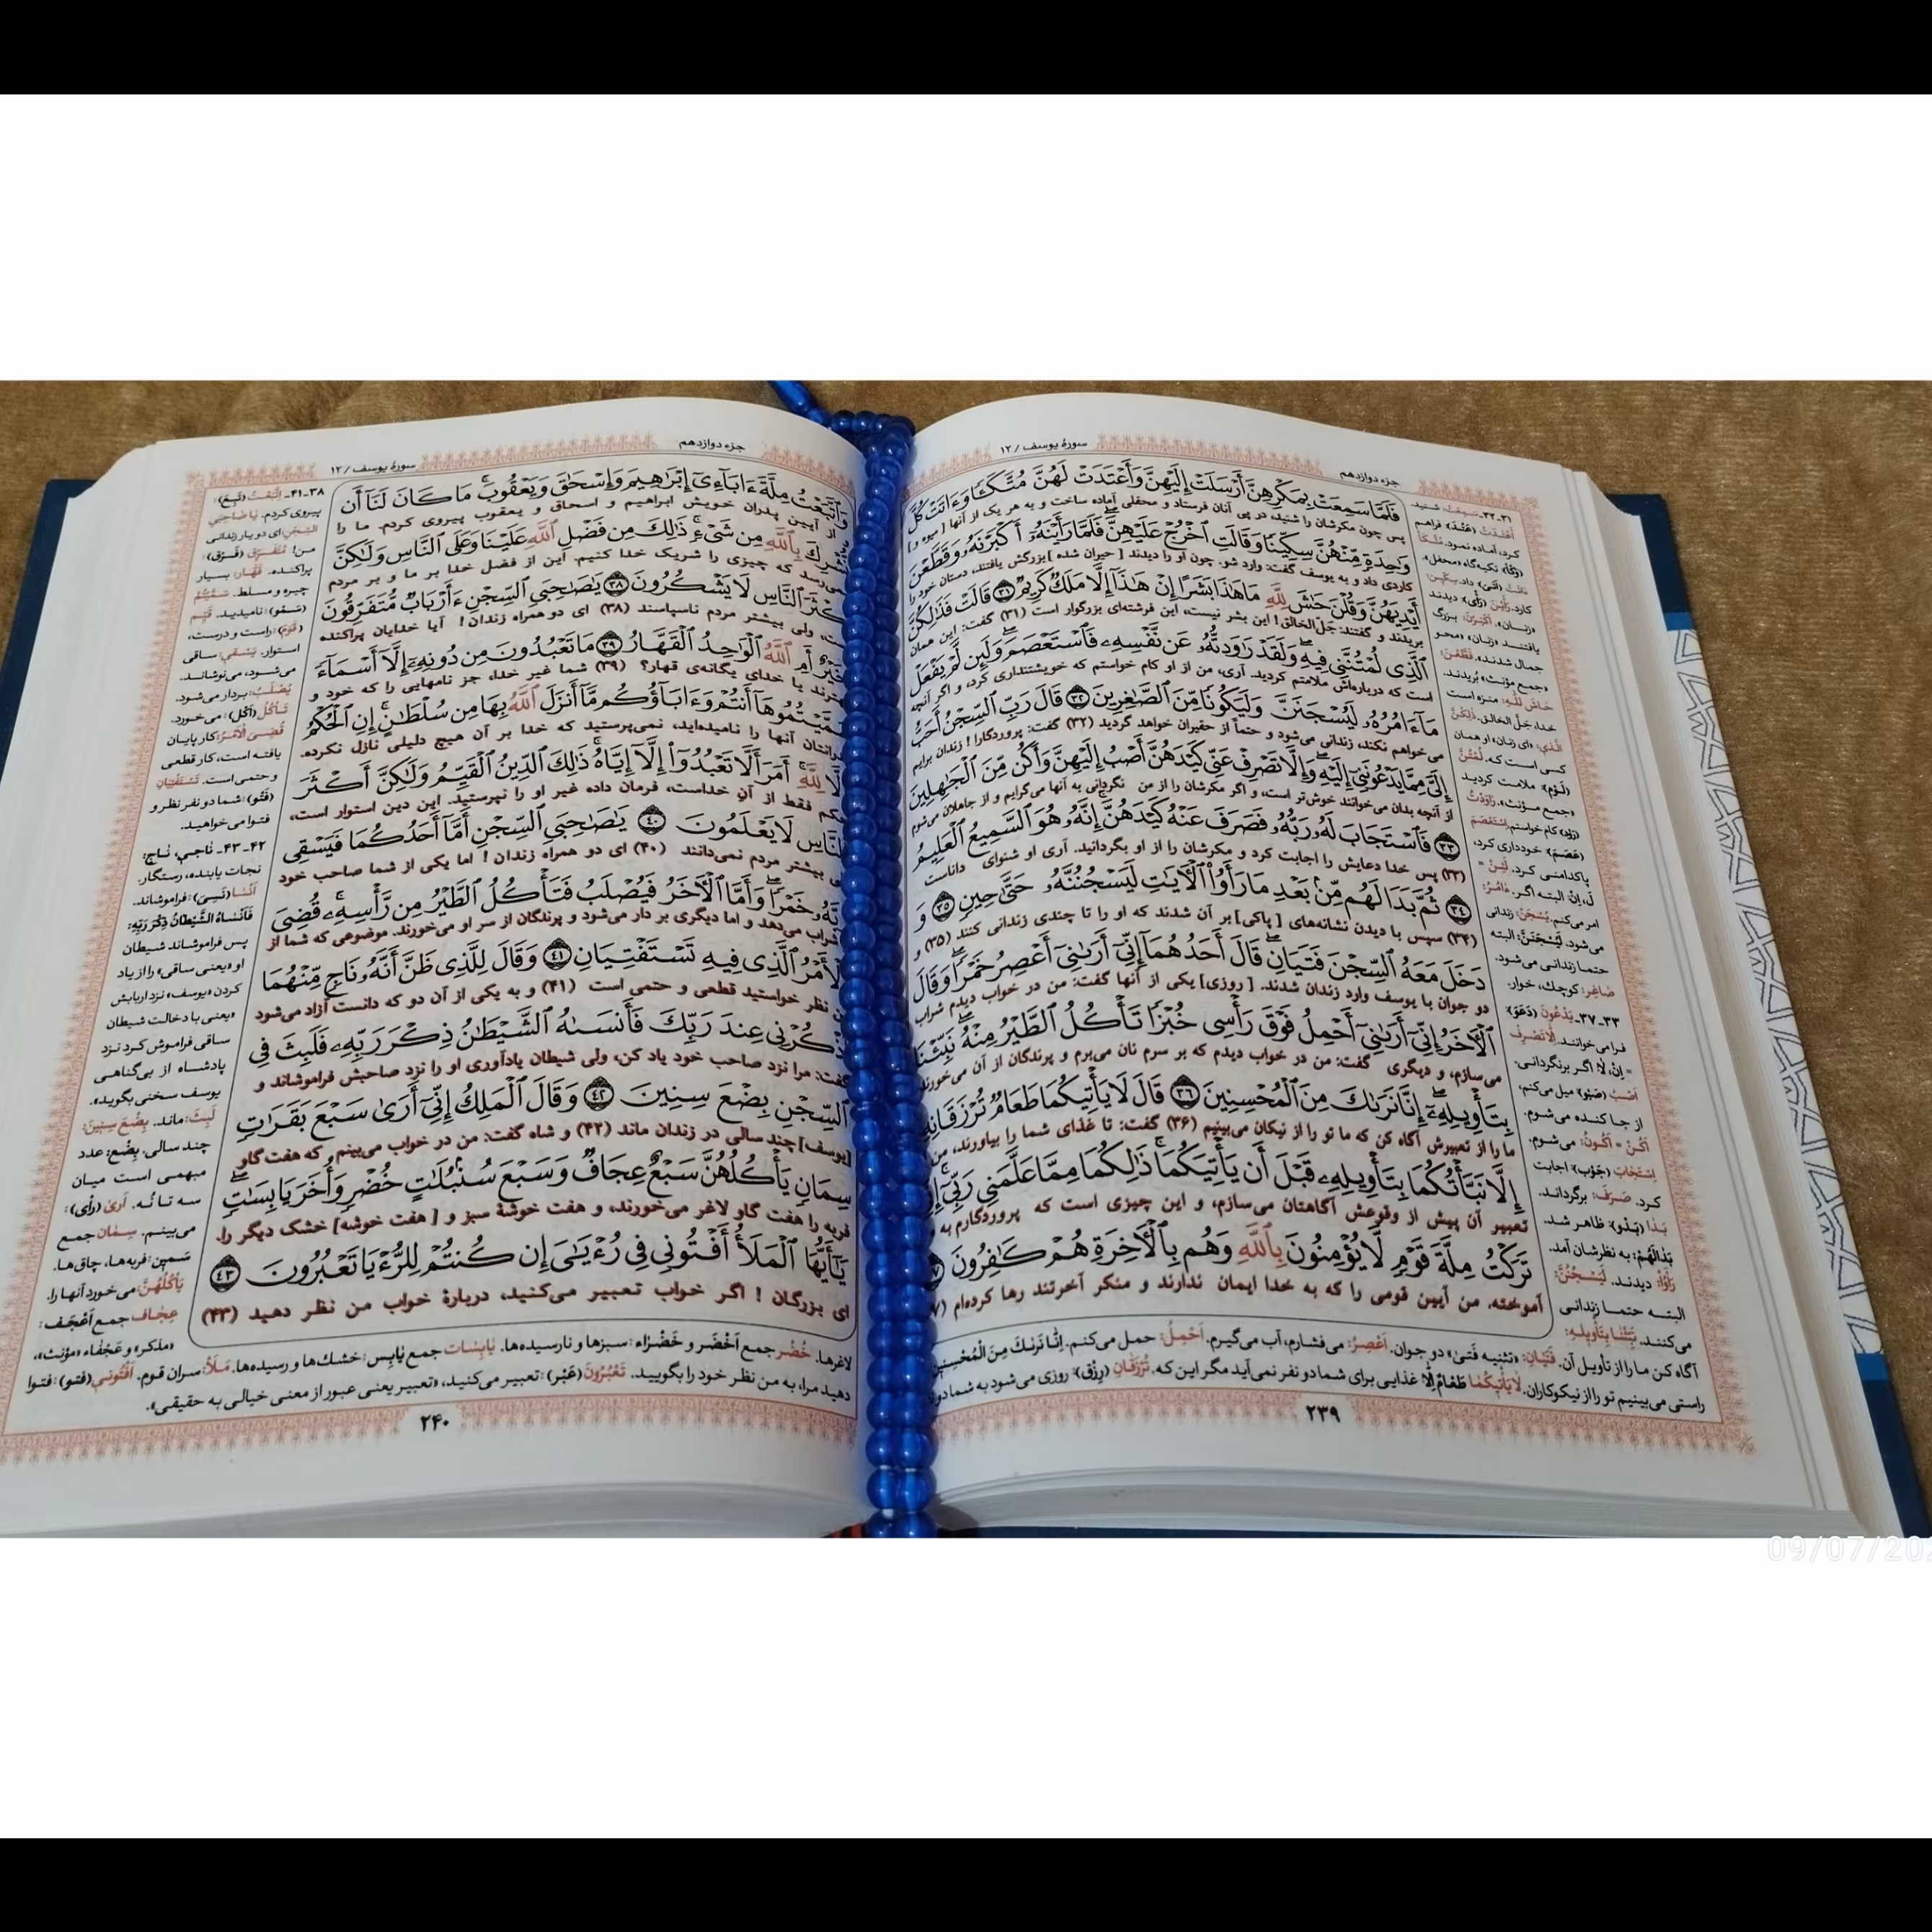 جزء دوازدهم
سورهٔ یوسف / ۱۲
فَلَمَّا سَمِعَتْ بِمَكْرِهِنَّ أَرْسَلَتْ إِلَيْهِنَّ وَأَعْتَدَتْ لَهُنَّ مُتَّكَـًٔا وَءَاتَتْ كُلَّ
پس چون مکرشان را شنید، در پی آنان فرستاد و محفلی آماده ساخت و به هر یک از آنها [ میوه و ]
وَٰحِدَةٍ مِّنْهُنَّ سِكِّينًا وَقَالَتِ ٱخْرُجْ عَلَيْهِنَّ فَلَمَّا رَأَيْنَهُۥٓ أَكْبَرْنَهُۥ وَقَطَّعْنَ
کاردی داد و به یوسف گفت: وارد شو. چون او را دیدند [ حیران شده ] بزرگش یافتند، دستان خود را
أَيْدِيَهُنَّ وَقُلْنَ حَـٰشَ لِلَّهِ مَا هَـٰذَا بَشَرًا إِنْ هَـٰذَآ إِلَّا مَلَكٌ كَرِيمٌ ۳۱ قَالَتْ فَذَٰلِكُنَّ
بریدند و گفتند: جلّ‌الخالق! این بشر نیست، این فرشته‌ای بزرگوار است (۳۱) گفت: این همان
ٱلَّذِى لُمْتُنَّنِى فِيهِ وَلَقَدْ رَٰوَدتُّهُۥ عَن نَّفْسِهِۦ فَٱسْتَعْصَمَ وَلَئِن لَّمْ يَفْعَلْ
است که درباره‌اش ملامتم کردید. آری، من از او کام خواستم که خویشتنداری کرد، و اگر آنچه
مَآ ءَامُرُهُۥ لَيُسْجَنَنَّ وَلَيَكُونًا مِّنَ ٱلصَّـٰغِرِينَ ۳۲ قَالَ رَبِّ ٱلسِّجْنُ أَحَبُّ
می‌خواهم نکند، زندانی می‌شود و حتماً از حقیران خواهد گردید (۳۲) گفت: پروردگارا ! زندان برایم
إِلَىَّ مِمَّا يَدْعُونَنِىٓ إِلَيْهِ وَإِلَّا تَصْرِفْ عَنِّى كَيْدَهُنَّ أَصْبُ إِلَيْهِنَّ وَأَكُن مِّنَ ٱلْجَـٰهِلِينَ
از آنچه بدان می‌خوانند خوش‌تر است، و اگر مکرشان را از من نگردانی به آنها می‌گرایم و از جاهلان می‌شوم
۳۳ فَٱسْتَجَابَ لَهُۥ رَبُّهُۥ فَصَرَفَ عَنْهُ كَيْدَهُنَّ إِنَّهُۥ هُوَ ٱلسَّمِيعُ ٱلْعَلِيمُ
(۳۳) پس خدا دعایش را اجابت کرد و مکرشان را از او بگردانید. آری او شنوای داناست
۳۴ ثُمَّ بَدَا لَهُم مِّنۢ بَعْدِ مَا رَأَوُا۟ ٱلْـَٔايَـٰتِ لَيَسْجُنُنَّهُۥ حَتَّىٰ حِينٍ ۳۵ وَ
(۳۴) سپس با دیدن نشانه‌های [پاکی] بر آن شدند که او را تا چندی زندانی کنند (۳۵) و
دَخَلَ مَعَهُ ٱلسِّجْنَ فَتَيَانِ قَالَ أَحَدُهُمَآ إِنِّىٓ أَرَىٰنِىٓ أَعْصِرُ خَمْرًا وَقَالَ
دو جوان با یوسف وارد زندان شدند. [ روزی] یکی از آنها گفت: من در خواب دیدم شراب
ٱلْـَٔاخَرُ إِنِّىٓ أَرَىٰنِىٓ أَحْمِلُ فَوْقَ رَأْسِى خُبْزًا تَأْكُلُ ٱلطَّيْرُ مِنْهُ نَبِّئْنَا
می‌سازم، و دیگری گفت: من در خواب دیدم که بر سرم نان می‌برم و پرندگان از آن می‌خورند
بِتَأْوِيلِهِۦٓ إِنَّا نَرَىٰكَ مِنَ ٱلْمُحْسِنِينَ ۳۶ قَالَ لَا يَأْتِيكُمَا طَعَامٌ تُرْزَقَانِهِ
ما را از تعبیرش آگاه کن که ما تو را از نیکان می‌بینیم (۳۶) گفت: تا غذای شما را بیاورند، من
إِلَّا نَبَّأْتُكُمَا بِتَأْوِيلِهِۦ قَبْلَ أَن يَأْتِيَكُمَا ذَٰلِكُمَا مِمَّا عَلَّمَنِى رَبِّىٓ
تعبیر آن پیش از وقوعش آگاهتان می‌سازم، و این چیزی است که پروردگارم به
تَرَكْتُ مِلَّةَ قَوْمٍ لَّا يُؤْمِنُونَ بِٱللَّهِ وَهُم بِٱلْـَٔاخِرَةِ هُمْ كَـٰفِرُونَ
آموخته. من آیین قومی را که به خدا ایمان ندارند و منکر آخرتند رها کرده‌ام
۳۱-۳۲- سَمِعَتْ: شنید.
أَعْتَدَتْ (عَتَدَ): فراهم
کرد، آماده نمود. مُتَّکَأً
(وَکَأَ): تکیه‌گاه «محفل».
آتَتْ (أتی): داد. سِکّین:
کارد. رَأَیْنَ (رَأی): دیدند
«زنان». أَکْبَرْنَ: بزرگ
یافتند «زنان» «محو
جمال شدند». قَطَّعْنَ:
«جمع مؤنث» بُریدند.
حَاشَ لِلّهِ: منزه است
خدا، جَلّ الخالق. ذٰلِکُنَّ
الَّذِی: «ای زنان» او همان
کسی است که. لُمْتُنَّ
(لَوْم): ملامت کردید
«جمع مؤنث». رَاوَدْتُ
(رَوَدَ): کام خواستم. اِسْتَعْصَمَ
(عَصَمَ): خودداری کرد،
پاکدامنی کرد. لَئِنْ =
لَ، إنْ: البته اگر. آمُرُ:
امر می‌کنم. یُسْجَنُ: زندانی
می‌شود. لَیُسْجَنَنَّ: البته
حتما زندانی می‌شود.
صَاغِر: کوچک، خوار.
۳۳-۳۷- یَدْعُونَ (دَعَوَ):
فرا می‌خوانند. إِلَّا تَصْرِفْ
= إِنْ، لَا: اگر برنگردانی.
أَصْبُ (صَبَوَ): میل می‌کنم،
از جا کنده می‌شوم.
أَکُنْ = أَکُونُ: می‌شوم.
اِسْتَجَابَ (جَوَبَ): اجابت
کرد. صَرَفَ: برگرداند.
بَدَا (بَدَوَ): ظاهر شد.
بَدَا لَهُمْ: به نظرشان آمد.
رَأَوْا: دیدند. لَیَسْجُنُنَّ:
البته حتما زندانی
می‌کنند. نَبِّئْنَا بِتَأْوِیلِهِ:
آگاه کن ما را از تأویل آن. فَتَیَانِ: «تثنیه فَتیٰ» دو جوان. أَعْصِرُ: می‌فشارم، آب می‌گیرم. أَحْمِلُ: حمل می‌کنم. إِنَّا نَرَاكَ مِنَ الْمُحْسِنِینَ
راستی می‌بینیم تو را از نیکوکاران. لَا یَأْتِیکُمَا طَعَامٌ إِلَّا: غذایی برای شما دو نفر نمی‌آید مگر این که. تُرْزَقَانِ (رِزْق): روزی می‌شود به شما دو
۲۳۹
جزء دوازدهم
سورهٔ یوسف / ۱۲
وَٱتَّبَعْتُ مِلَّةَ ءَابَآءِىٓ إِبْرَٰهِيمَ وَإِسْحَـٰقَ وَيَعْقُوبَ مَا كَانَ لَنَآ أَن
از آیین پدران خویش ابراهیم و اسحاق و یعقوب پیروی کردم. ما را
نُّشْرِكَ بِٱللَّهِ مِن شَىْءٍ ذَٰلِكَ مِن فَضْلِ ٱللَّهِ عَلَيْنَا وَعَلَى ٱلنَّاسِ وَلَـٰكِنَّ
نمی‌رسد که چیزی را شریک خدا کنیم. این از فضل خدا بر ما و بر مردم
أَكْثَرَ ٱلنَّاسِ لَا يَشْكُرُونَ ۳۸ يَـٰصَـٰحِبَىِ ٱلسِّجْنِ ءَأَرْبَابٌ مُّتَفَرِّقُونَ
ولی بیشتر مردم ناسپاسند (۳۸) ای دو همراه زندان! آیا خدایان پراکنده
خَيْرٌ أَمِ ٱللَّهُ ٱلْوَٰحِدُ ٱلْقَهَّارُ ۳۹ مَا تَعْبُدُونَ مِن دُونِهِۦٓ إِلَّآ أَسْمَآءً
بهترند یا خدای یگانه‌ی قهار؟ (۳۹) شما غیر خدا، جز نامهایی را که خود و
سَمَّيْتُمُوهَآ أَنتُمْ وَءَابَآؤُكُم مَّآ أَنزَلَ ٱللَّهُ بِهَا مِن سُلْطَـٰنٍ إِنِ ٱلْحُكْمُ
پدرانتان آنها را نامیده‌اید، نمی‌پرستید که خدا بر آن هیچ دلیلی نازل نکرده.
إِلَّا لِلَّهِ أَمَرَ أَلَّا تَعْبُدُوٓا۟ إِلَّآ إِيَّاهُ ذَٰلِكَ ٱلدِّينُ ٱلْقَيِّمُ وَلَـٰكِنَّ أَكْثَرَ
حکم فقط از آنِ خداست، فرمان داده غیر او را نپرستید. این دین استوار است،
ٱلنَّاسِ لَا يَعْلَمُونَ ۴۰ يَـٰصَـٰحِبَىِ ٱلسِّجْنِ أَمَّآ أَحَدُكُمَا فَيَسْقِى
بیشتر مردم نمی‌دانند (۴۰) ای دو همراه زندان ! اما یکی از شما صاحب خود
رَبَّهُۥ خَمْرًا وَأَمَّا ٱلْـَٔاخَرُ فَيُصْلَبُ فَتَأْكُلُ ٱلطَّيْرُ مِن رَّأْسِهِۦ قُضِىَ
شراب می‌دهد و اما دیگری بر دار می‌شود و پرندگان از سر او می‌خورند. موضوعی که شما از
ٱلْأَمْرُ ٱلَّذِى فِيهِ تَسْتَفْتِيَانِ ۴۱ وَقَالَ لِلَّذِى ظَنَّ أَنَّهُۥ نَاجٍ مِّنْهُمَا
نظر خواستید قطعی و حتمی است (۴۱) و به یکی از آن دو که دانست آزاد می‌شود
ٱذْكُرْنِى عِندَ رَبِّكَ فَأَنسَىٰهُ ٱلشَّيْطَـٰنُ ذِكْرَ رَبِّهِۦ فَلَبِثَ فِى
گفت: مرا نزد صاحب خود یاد کن، ولی شیطان یادآوری او را نزد صاحبش فراموشاند و
ٱلسِّجْنِ بِضْعَ سِنِينَ ۴۲ وَقَالَ ٱلْمَلِكُ إِنِّىٓ أَرَىٰ سَبْعَ بَقَرَٰتٍ
[یوسف] چند سالی در زندان ماند (۴۲) و شاه گفت: من در خواب می‌بینم که هفت گاو
سِمَانٍ يَأْكُلُهُنَّ سَبْعٌ عِجَافٌ وَسَبْعَ سُنۢبُلَـٰتٍ خُضْرٍ وَأُخَرَ يَابِسَـٰتٍ
فربه را هفت گاو لاغر می‌خورند، و هفت خوشهٔ سبز و [ هفت خوشه] خشک دیگر را.
يَـٰٓأَيُّهَا ٱلْمَلَأُ أَفْتُونِى فِى رُءْيَـٰىَ إِن كُنتُمْ لِلرُّءْيَا تَعْبُرُونَ ۴۳
ای بزرگان ! اگر خواب تعبیر می‌کنید، دربارهٔ خواب من نظر دهید (۴۳)
۳۸-۴۱- اِتَّبَعْتُ (تَبِعَ):
پیروی کردم. یَا صَاحِبَیِ
السِّجْنِ: ای دو یار زندانی
من! مُتَفَرِّق (فَرَقَ):
پراکنده. قَهَّار: بسیار
چیره و مسلط. سَمَّیْتُمْ
(سَمَوَ): نامیدید. قَیِّم
(قَوَمَ): راست و درست،
استوار. یَسْقِی: ساقی
می‌شود، می‌نوشاند.
یُصْلَبُ: بردار می‌شود.
تَأْکُلُ (أکَلَ): می‌خورد.
قُضِیَ الْأَمْرُ: کار پایان
یافته است، کار قطعی
و حتمی است. تَسْتَفْتِیَانِ
(فَتَوَ): شما دو نفر نظر و
فتوا می‌خواهید.
۴۲-۴۳- ناجی، ناجٍ:
نجات یابنده، رستگار.
أَنْسَا (نَسِیَ): فراموشاند.
فَأَنْسَاهُ الشَّیْطَانُ ذِکْرَ رَبِّهِ:
پس فراموشاند شیطان
او «یعنی ساقی» را از یاد
کردن «یوسف» نزد اربابش
«یعنی با دخالت شیطان
ساقی فراموش کرد نزد
پادشاه از بی‌گناهی
یوسف سخنی بگوید».
لَبِثَ: ماند. بِضْعَ سِنِینَ:
چند سالی. بِضْع: عدد
مبهمی است میان
سه تا نُه. أَرَیٰ (رأی):
می‌بینم. سِمَان جمع
سَمین: فربه‌ها، چاق‌ها.
یَأْکُلُهُنَّ: می‌خورد آنها را.
عِجَاف جمع أَعْجَف:
«مذکر» و عَجْفَاء «مؤنث»،
لاغرها. خُضْر جمع أَخْضَر و خَضْرَاء: سبزها و نارسیده‌ها. یَابِسَات جمع یَابِس: خشک‌ها و رسیده‌ها. مَلَأ: سران قوم. أَفْتُونِی (فَتَوَ): فتوا
دهید مرا، به من نظر خود را بگویید. تَعْبُرُونَ (عَبَرَ): تعبیر می‌کنید، «تعبیر یعنی عبور از معنی خیالی به حقیقی».
۲۴۰
09/07/20